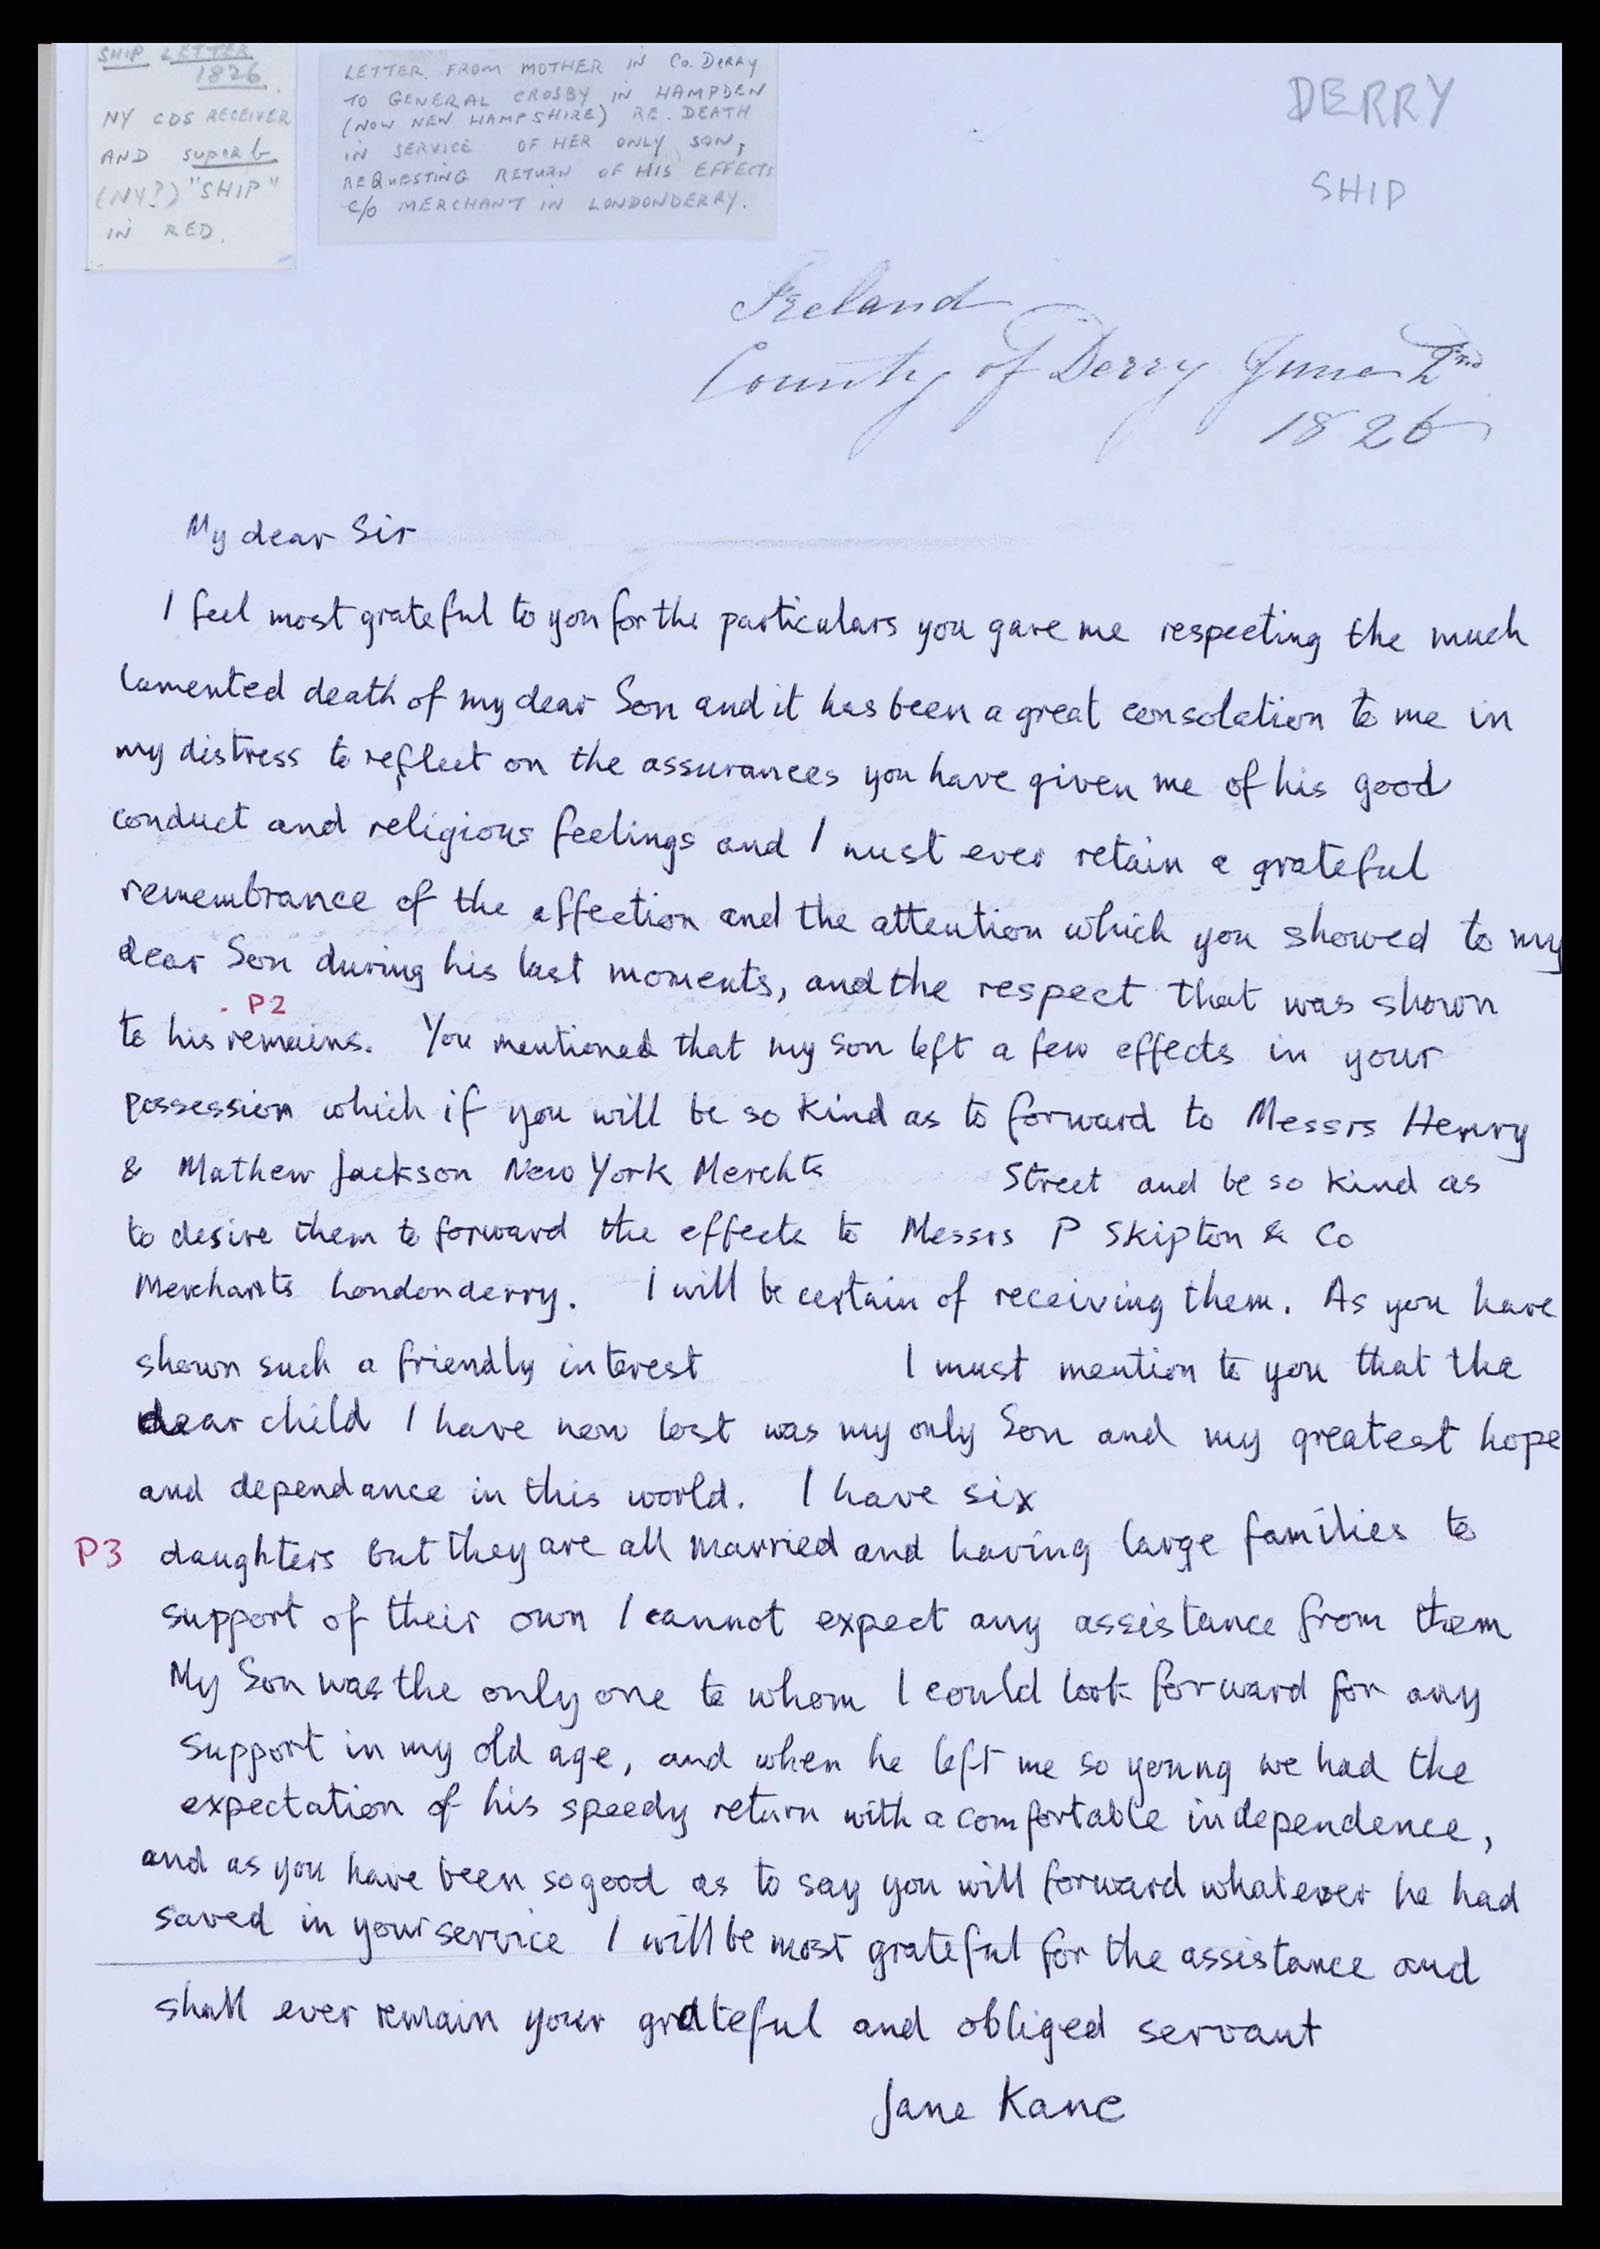 SHIP LETTER
1826.
NY CDS RECEIVER
AND superb
(NY?) "SHIP"
IN RED.
LETTER FROM MOTHER IN Co. DERRY
TO GENERAL CROSBY IN HAMPDEN
(NOW NEW HAMPSHIRE) RE. DEATH
IN SERVICE OF HER ONLY SON,
REQUESTING RETURN OF HIS EFFECTS
c/o MERCHANT IN LONDONDERRY.
DERRY
SHIP
Ireland
County of Derry June
1826
My dear Sir
I feel most grateful to you for the particulars you gave me respecting the much
lamented death of my dear Son and it has been a great consolation to me in
my distress to reflect on the assurances you have given me of his good
conduct and religious feelings and I must ever retain a grateful
remembrance of the affection and the attention which you showed to my
dear Son during his last moments, and the respect that was shown
P2
to his remains. You mentioned that my son left a few effects in your
possession which if you will be so kind as to forward to Messrs Henry
& Mathew Jackson New York Merchts Street and be so kind as
to desire them to forward the effects to Messrs P Skipton & Co
Merchants Londonderry. I will be certain of receiving them. As you have
shown such a friendly interest I must mention to you that the
dear child I have now lost was my only Son and my greatest hope
and dependance in this world. I have six
P3 daughters but they are all married and having large families to
support of their own I cannot expect any assistance from them
My Son was the only one to whom I could look forward for any
support in my old age, and when he left me so young we had the
expectation of his speedy return with a comfortable independence,
and as you have been so good as to say you will forward whatever he had
saved in your service I will be most grateful for the assistance and
shall ever remain your grateful and obliged servant
Jane Kane